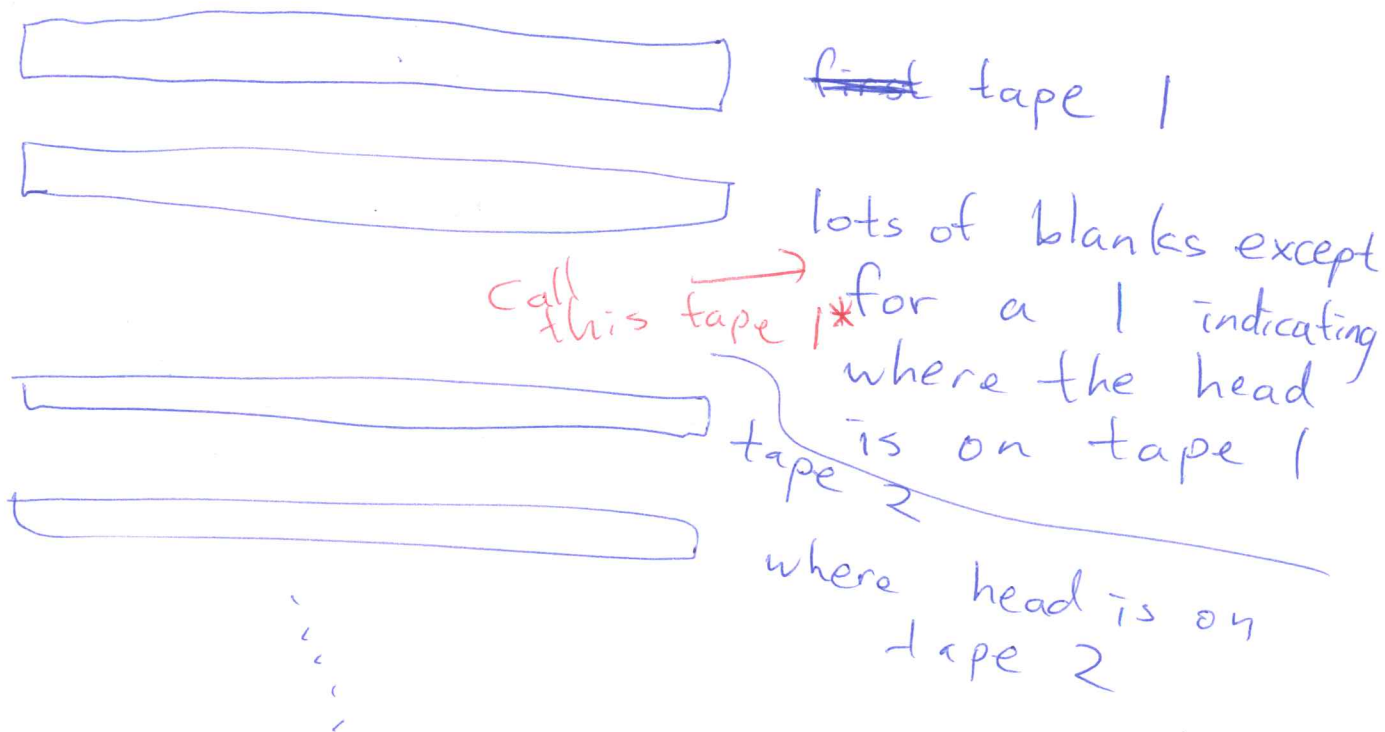 first tape 1
lots of blanks except
for a 1 indicating
where the head
is on tape 1
call
this tape 1*
tape 2
where head is on
tape 2